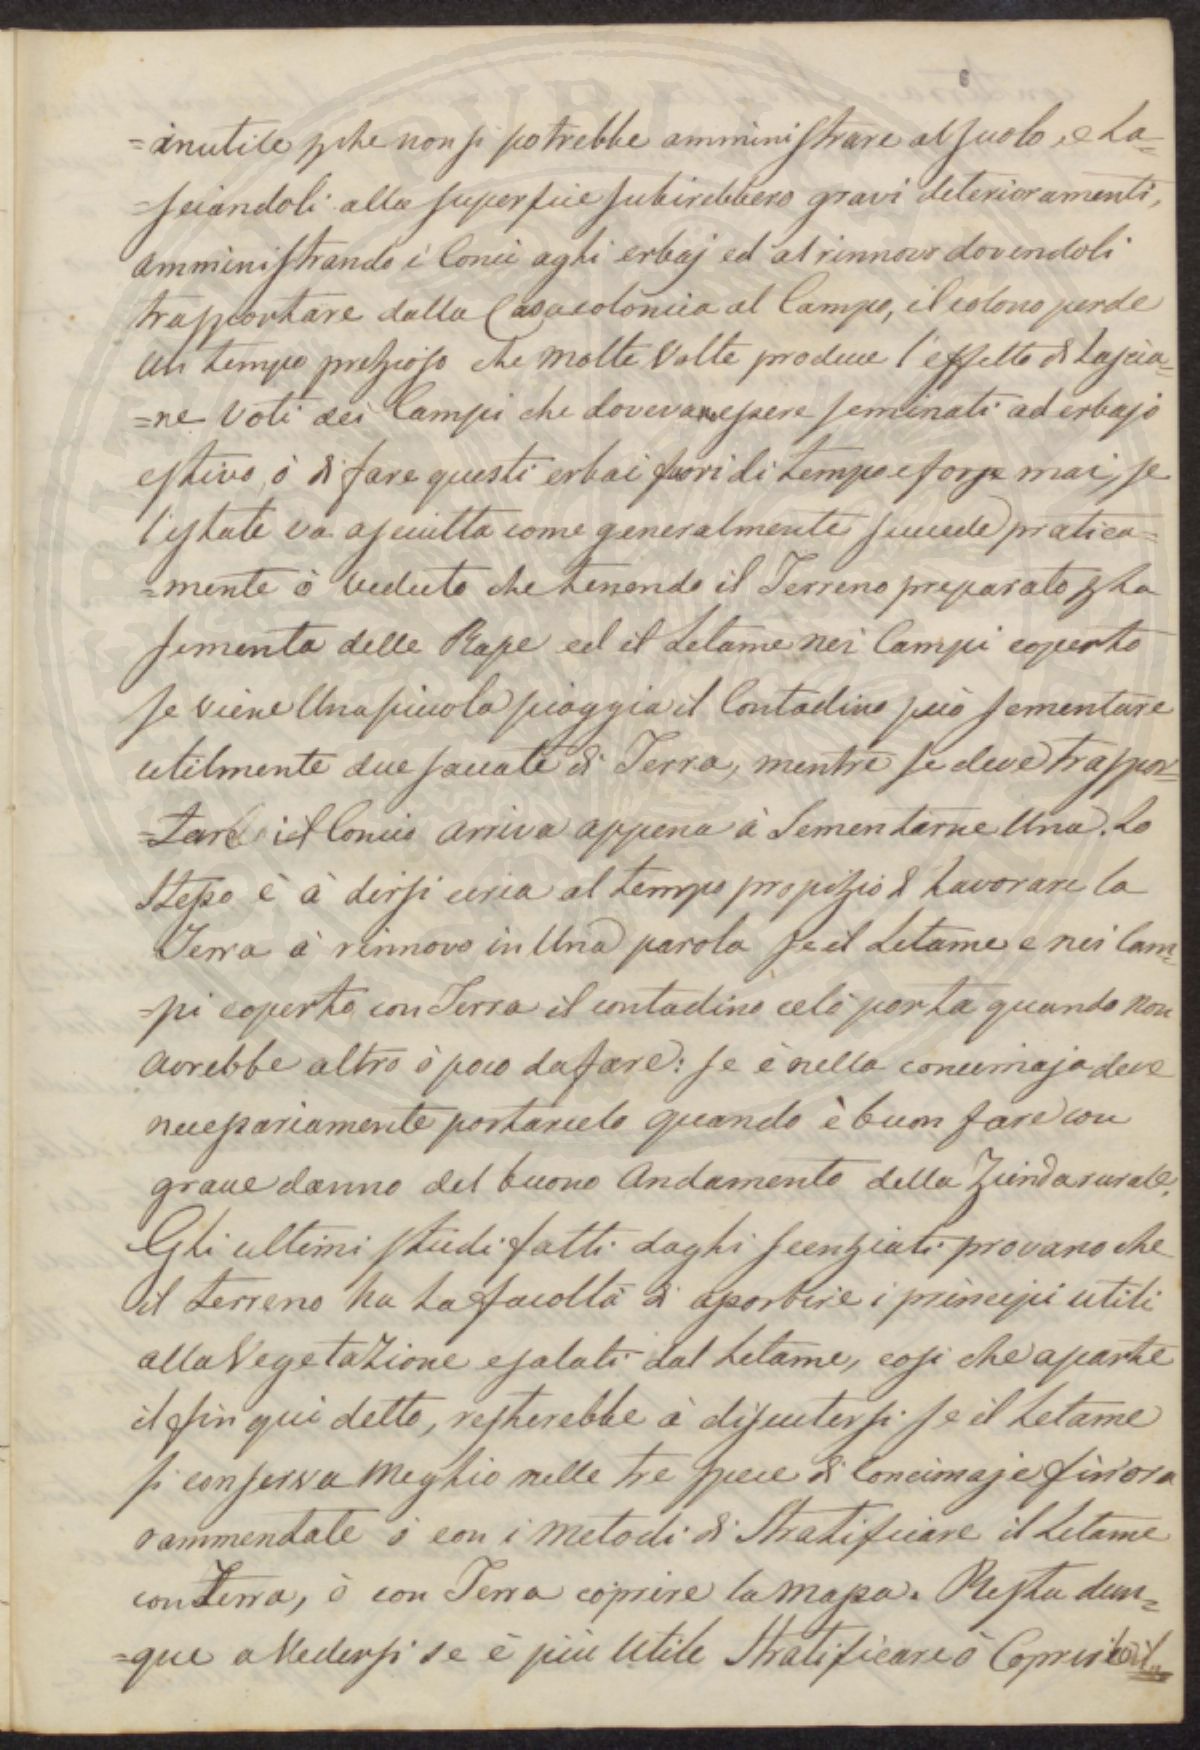 6
=inutile pche non si potrebbe amministrare al suolo, e la=
=sciandoli alla superficie subirebbero gravi deterioramenti,
amministrando i Conci agli erbaj ed al rinnovo dovendoli
trapportare dalla Casa colonica al Campo, il colono perde
un tempo prezioso che molte Volte produce l'effetto di lascia=
=ne Voti dei Campi che dovevano essere seminati ad erbajo
estivo, ò di fare questi erbai fuori di tempo e forse mai, se
l'estate va asciutta come generalmente succede pratica=
=mente ò veduto che tenendo il Terreno preparato p la
sementa delle Rape ed il Letame nei Campi coperto
se viene Una piccola pioggia il Contadino può sementare
utilmente due saccate di Terra, mentre se deve trappor=
=tare il Concio arriva appena à Sementarne Una. Lo
Stesso è à dirsi circa al tempo propizio di Lavorare la
Terra à rinnovo in Una parola se il Letame e nei Cam=
=pi coperto con Terra il contadino celò porta quando non
avrebbe altro ò poco da fare: se è nella concimaja deve
necessariamente portarcelo quando è buon fare con
grave danno del buono Andamento della Zienda rurale.
Gli ultimi studi fatti daghi scenziati provano che
il terreno ha la facoltà di assorbire i principi utili
alla VegetaZione esalati dal Letame, così che aparte
il fin qui detto, resterebbe à discutersi se il Letame
si conserva Meghio nelle tre spece di Concimaje fin'ora
rammentate ò con i Metodi di Stratificare il Letame
con Terra, ò con Terra coprire la Massa. Resta dun=
=que a Vedersi se è più Utile Stratificare ò Coprire il